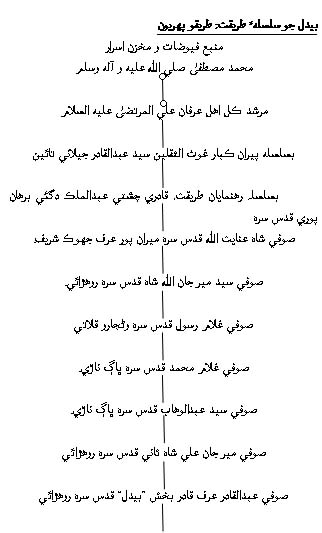 بيدل جو سلسلهء طريقت: طريقو پهريون
منبع فيوضات و مخزن اسرار
محمد مصطفيٰ صلي الله عليه و آله وسلم
مرشد کل اهل عرفان علي المرتضيٰ عليه السلام
بسلسله پيران ڪبار غوث الثقلين سيد عبدالقادر جيلاني تائين
بسلسله رهنمايان طريقت، قادري چشتي عبدالملڪ دڪني برهان
پوري قدس سره
صوفي شاه عنايت الله قدس سره ميران پور عرف جهوڪ شريف
صوفي سيد مير جان الله شاه قدس سره روهڙائي
صوفي غلام رسول قدس سره وڻجارو قلاتي
صوفي غلام محمد قدس سره ڀاڳ ناڙي
صوفي سيد عبدالوهاب قدس سره ڀاڳ ناڙي
صوفي مير جان علي شاه ثاني قدس سره روهڙائي
صوفي عبدالقادر عرف قادر بخش "بيدل" قدس سره روهڙائي